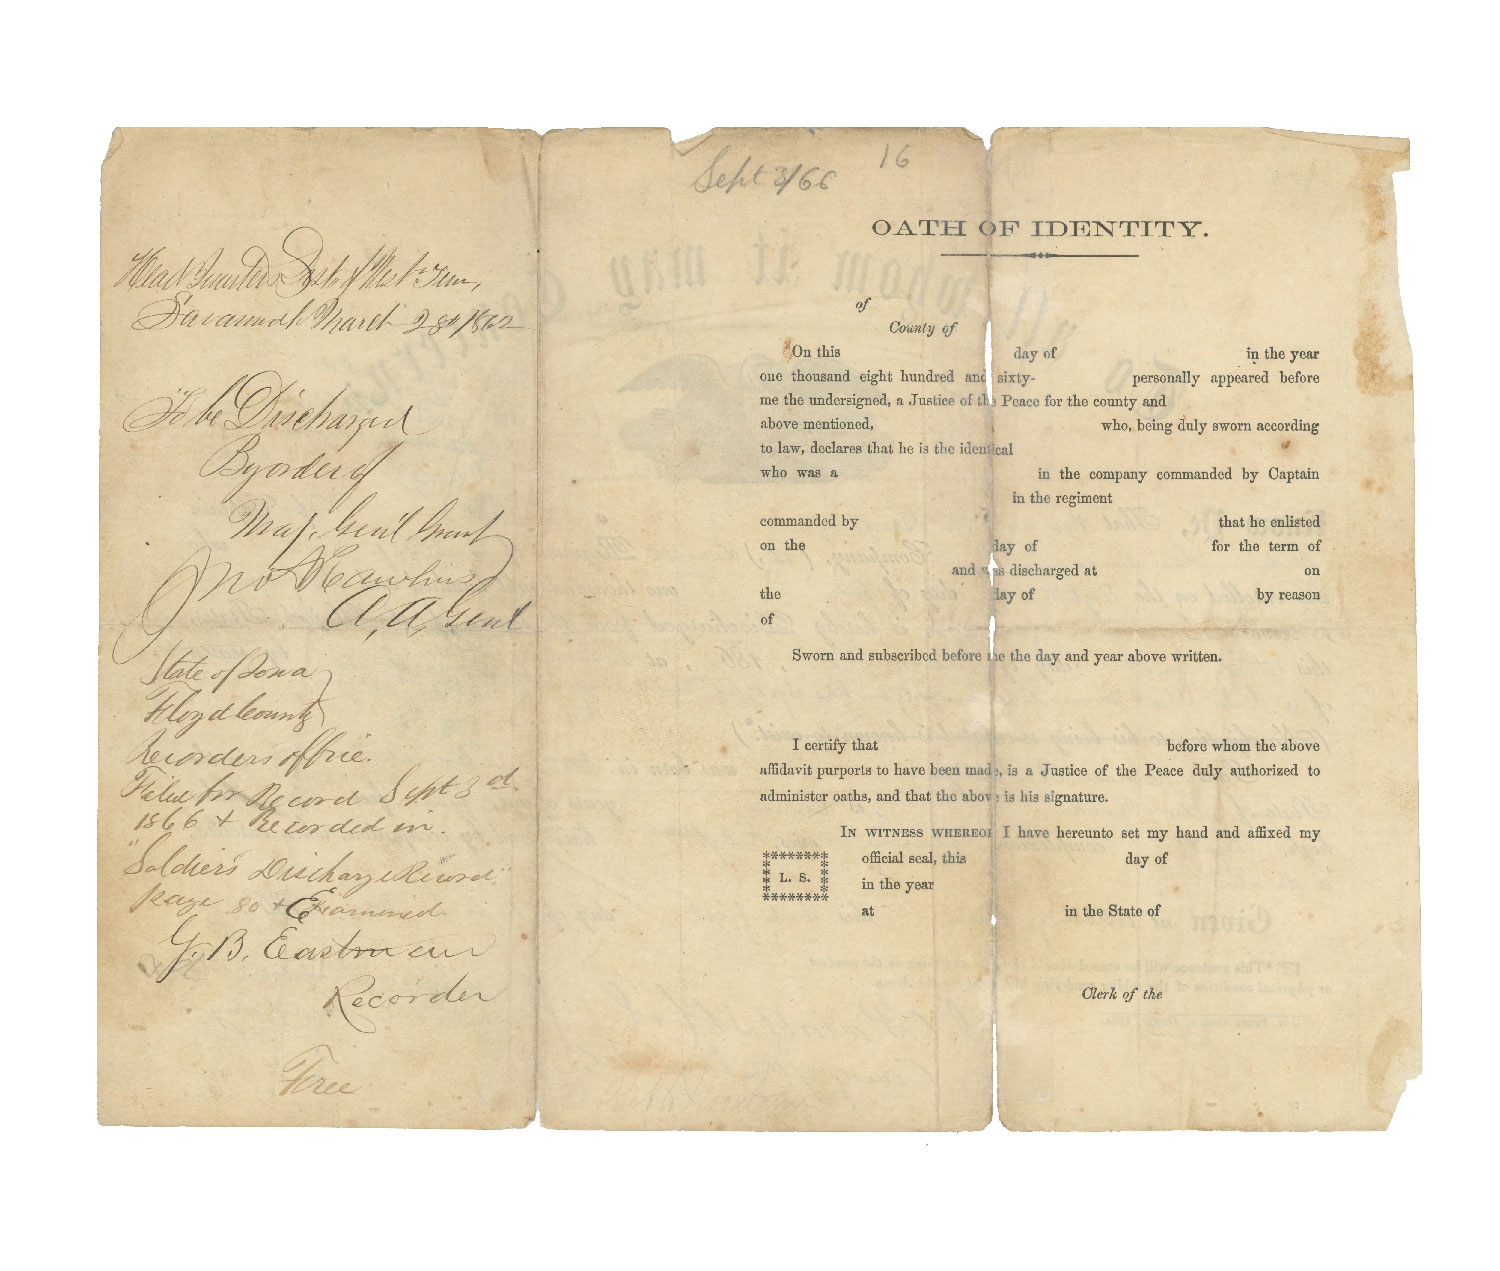 Sept 3/66
16
Head Quarters Dist of West Tenn,
Savannah March 28th 1862
To be Discharged
By order of
Maj. Genl Grant
Jno P Hawkins
A, A, Genl
State of Iowa
Floyd County
Recorders office.
Filed for Record Sept 3rd
1866 & Recorded in
"Soldiers Discharge Record"
page 80 & Examined
G. B. Eastman
Recorder
Free
OATH OF IDENTITY.
of
County of
On this day of in the year
one thousand eight hundred and sixty- personally appeared before
me the undersigned, a Justice of the Peace for the county and
above mentioned, who, being duly sworn according
to law, declares that he is the identical
who was a in the company commanded by Captain
in the regiment
commanded by that he enlisted
on the day of for the term of
and was discharged at on
the day of by reason
of
Sworn and subscribed before me the day and year above written.
I certify that before whom the above
affidavit purports to have been made, is a Justice of the Peace duly authorized to
administer oaths, and that the above is his signature.
IN WITNESS WHEREOF I have hereunto set my hand and affixed my
official seal, this day of
L. S.
in the year
at in the State of
Clerk of the